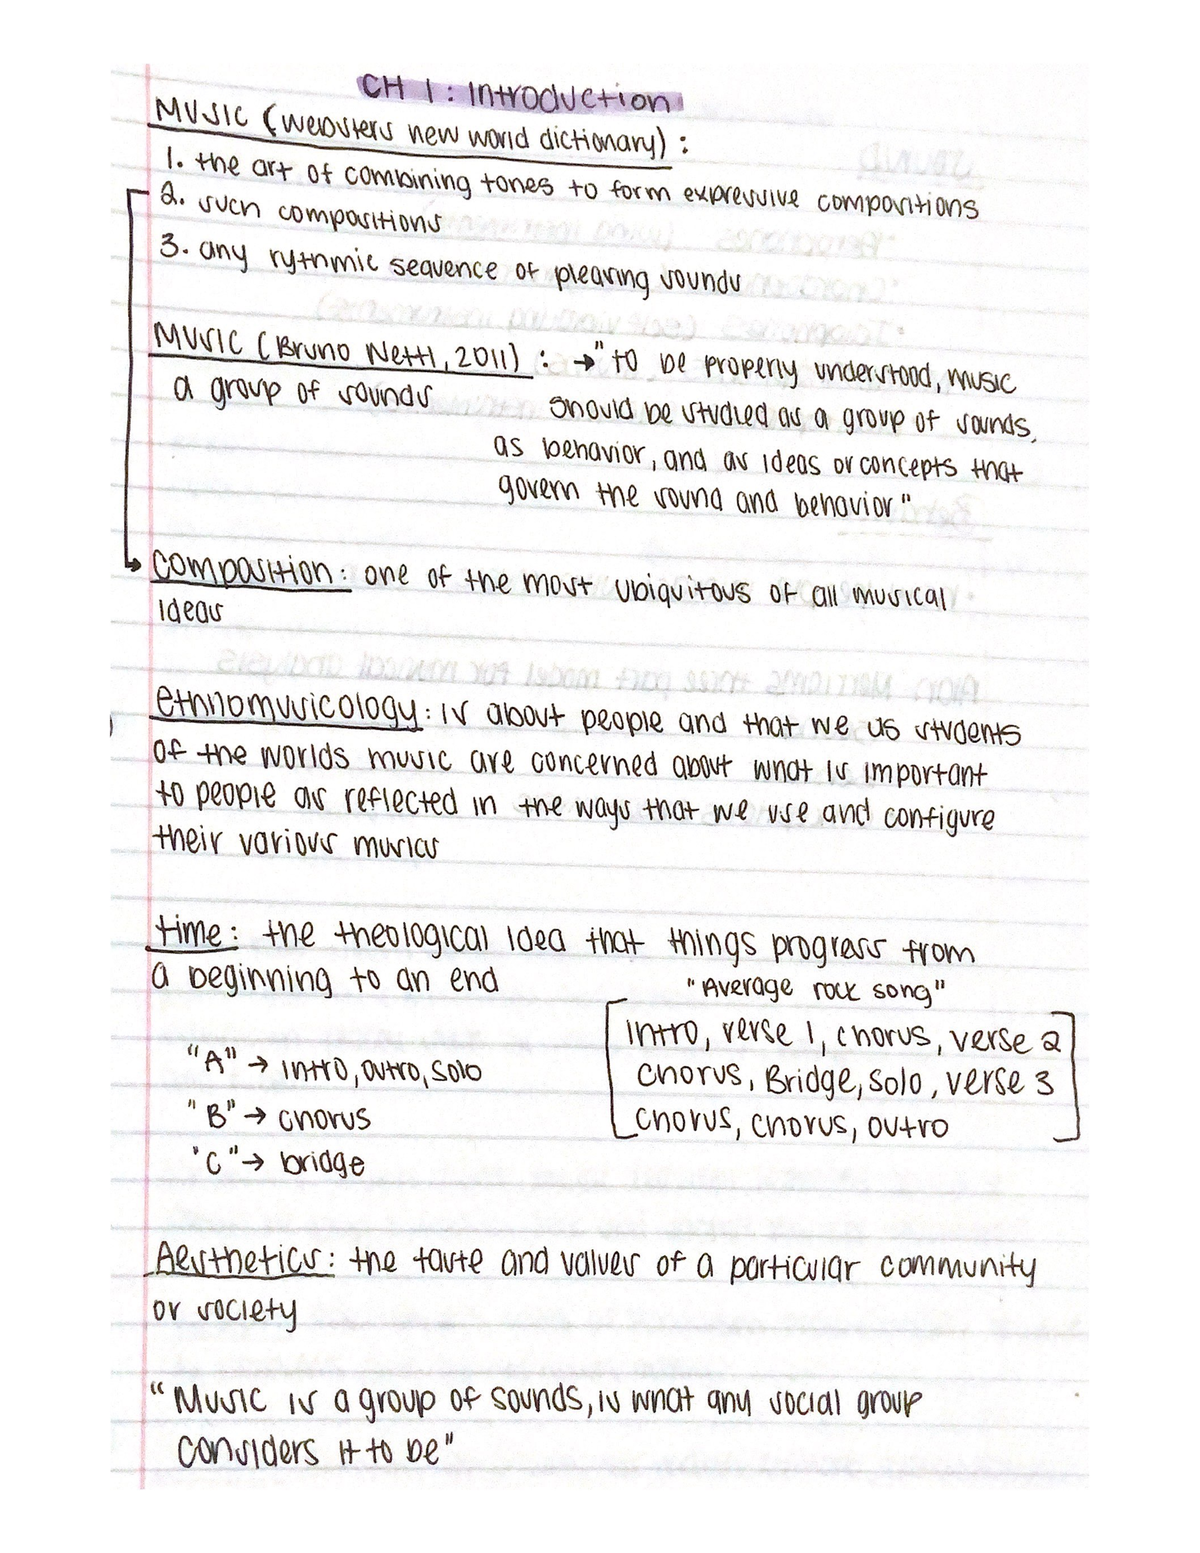 CH 1: Introduction
MUSIC (websters new world dictionary):
1. the art of combining tones to form expressive compositions
2. such compositions
3. any rythmic sequence of pleasing sounds
MUSIC (Bruno Nettl, 2011): → "to be properly understood, music
a group of sounds
should be studied as a group of sounds,
as behavior, and as ideas or concepts that
govern the sound and behavior"
composition: one of the most ubiquitous of all musical
ideas
ethnomusicology: is about people and that we us students
of the worlds music are concerned about what is important
to people as reflected in the ways that we use and configure
their various musics
time: the theological idea that things progress from
a beginning to an end
"Average rock song"
intro, verse 1, chorus, verse 2
chorus, Bridge, solo, verse 3
chorus, chorus, outro
"A" → intro, outro, solo
"B" → chorus
"C" → bridge
Aesthetics: the taste and values of a particular community
or society
"Music is a group of sounds, is what any social group
considers it to be"